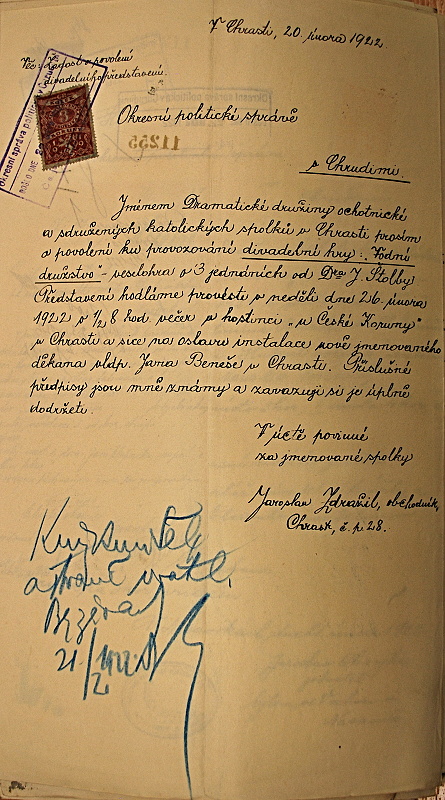 V Chrasti, 20 února 1922
Věc: Žádost o povolení
divadelního představení.
Okresní politické správě
v Chrudimi.
11255
Jménem Dramatické družiny ochotnické
a sdružených katolických spolků v Chrasti prosím
o povolení ku provozování divadelní hry: "Vodní
družstvo" veselohra o 3 jednáních od Dra J. Štolby
Představení hodláme provésti v neděli dne 26. února
1922 o ½8 hod. večer v hostinci "u České Koruny"
v Chrasti a sice na oslavu instalace nově jmenovaného
děkana vldp. Jana Beneše v Chrasti. Příslušné
předpisy jsou mně známy a zavazuji si je úplně
dodržeti.
V úctě povinné
za jmenované spolky
Jaroslav Zdražil, obchodník,
Chrast, č. p. 28.
21/2